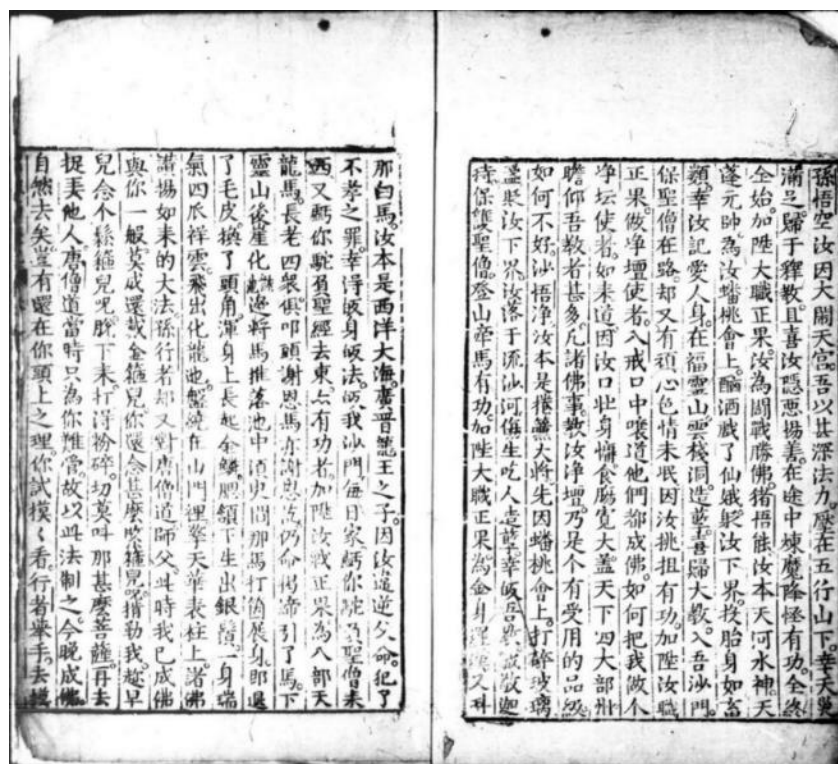 孫悟空汝因大鬧天宮。吾以甚深法力壓在五行山下。幸天災
滿足。歸于釋教。且喜汝隱惡揚善。在途中煉魔降怪有功。全終
全始。加陞大職正果。汝為鬪戰勝佛。猪悟能。汝本天河水神。天
蓬元帥為汝蟠桃會上。酗酒戲了仙娥。貶汝下界。投胎身如畜
類。幸汝記愛人身。在福靈山雲棧洞。造孽。喜歸大教。入吾沙門。
保聖僧在路。却又有頑心色情未泯。因汝挑担有功。加陞汝職
正果。做净壇使者。八戒口中嚷道。他們都成佛。如何把我做个
净坛使者。如来道。因汝口壮身懶。食腸寬大。盖天下四大部州
瞻仰吾教者甚多。凡諸佛事。教汝净壇。乃是个有受用的品級。
如何不好。沙悟净。汝本是捲簾大將。先因蟠桃會上。打碎玻璃
盞。貶汝下界。汝落于流沙河。傷生吃人造孽。幸皈吾教。誠敬迦
持。保護聖僧。登山牽馬有功。加陞大職正果。為金身羅漢。又叫
那白馬。汝本是西洋大海。廣晉龍王之子。因汝違逆父命。犯了
不孝之罪。幸得皈身皈法。皈我沙門。每日家虧你駝負聖僧来
西。又虧你駝負聖經去東。亦有功者。加陞汝職正果。為八部天
龍馬。長老四衆。俱叩頭謝恩。馬亦謝恩訖。仍命揭諦引了馬。下
靈山後崖。化龍池邊。將馬推落池中。湏臾間。那馬打個展身。即退
了毛皮。換了頭角。渾身上長起金鱗。腮頷下生出銀鬚。一身瑞
氣。四爪祥雲。飛出化龍池。盤繞在山門裡擎天華表柱上。諸佛
讚揚如来的大法。孫行者却又對唐僧道。師父。此時我已成佛。
與你一般。莫成還戴金箍兒。你還念甚麽咒箍兒呪。揹勒我。趂早
兒念个鬆箍兒呪。脫下来。打得粉碎。切莫叫那甚麽菩薩。再去
捉美他人。唐僧道。當時只為你難管。故以此法制之。今晚成佛。
自然去矣。豈有還在你頭上之理。你試摸〻看。行者舉手。去摸